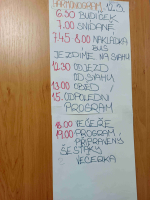 HARMONOGRAM 12.9.
6.30 BUDÍČEK
7.00 SNÍDANĚ
7.45 8.00 NAKLÁDKA
BUS
JEZDÍME NA SVAHU
12.30 ODJEZD
OD SVAHU
13.00 OBĚD
15. ODPOLEDNÍ
PROGRAM
18.00 VEČEŘE
19.00 PROGRAM
PŘIPRAVENÝ
ŠESŤÁKY
VEČERKA